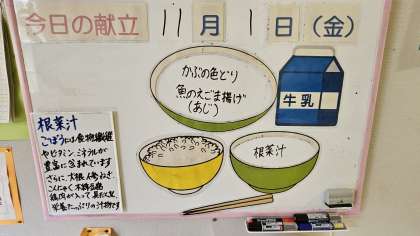 今日の献立 11月1日(金)
かぶの色どり
魚のえごま揚げ
(あじ)
牛乳
根菜汁
根菜汁
ごぼうには食物繊維
やビタミン ミネラルが
豊富に含まれています
さらに、大根 人参 ねぎ
こんにゃく 木綿豆腐
鶏肉が入って 具だくさん
栄養たっぷりの汁物です